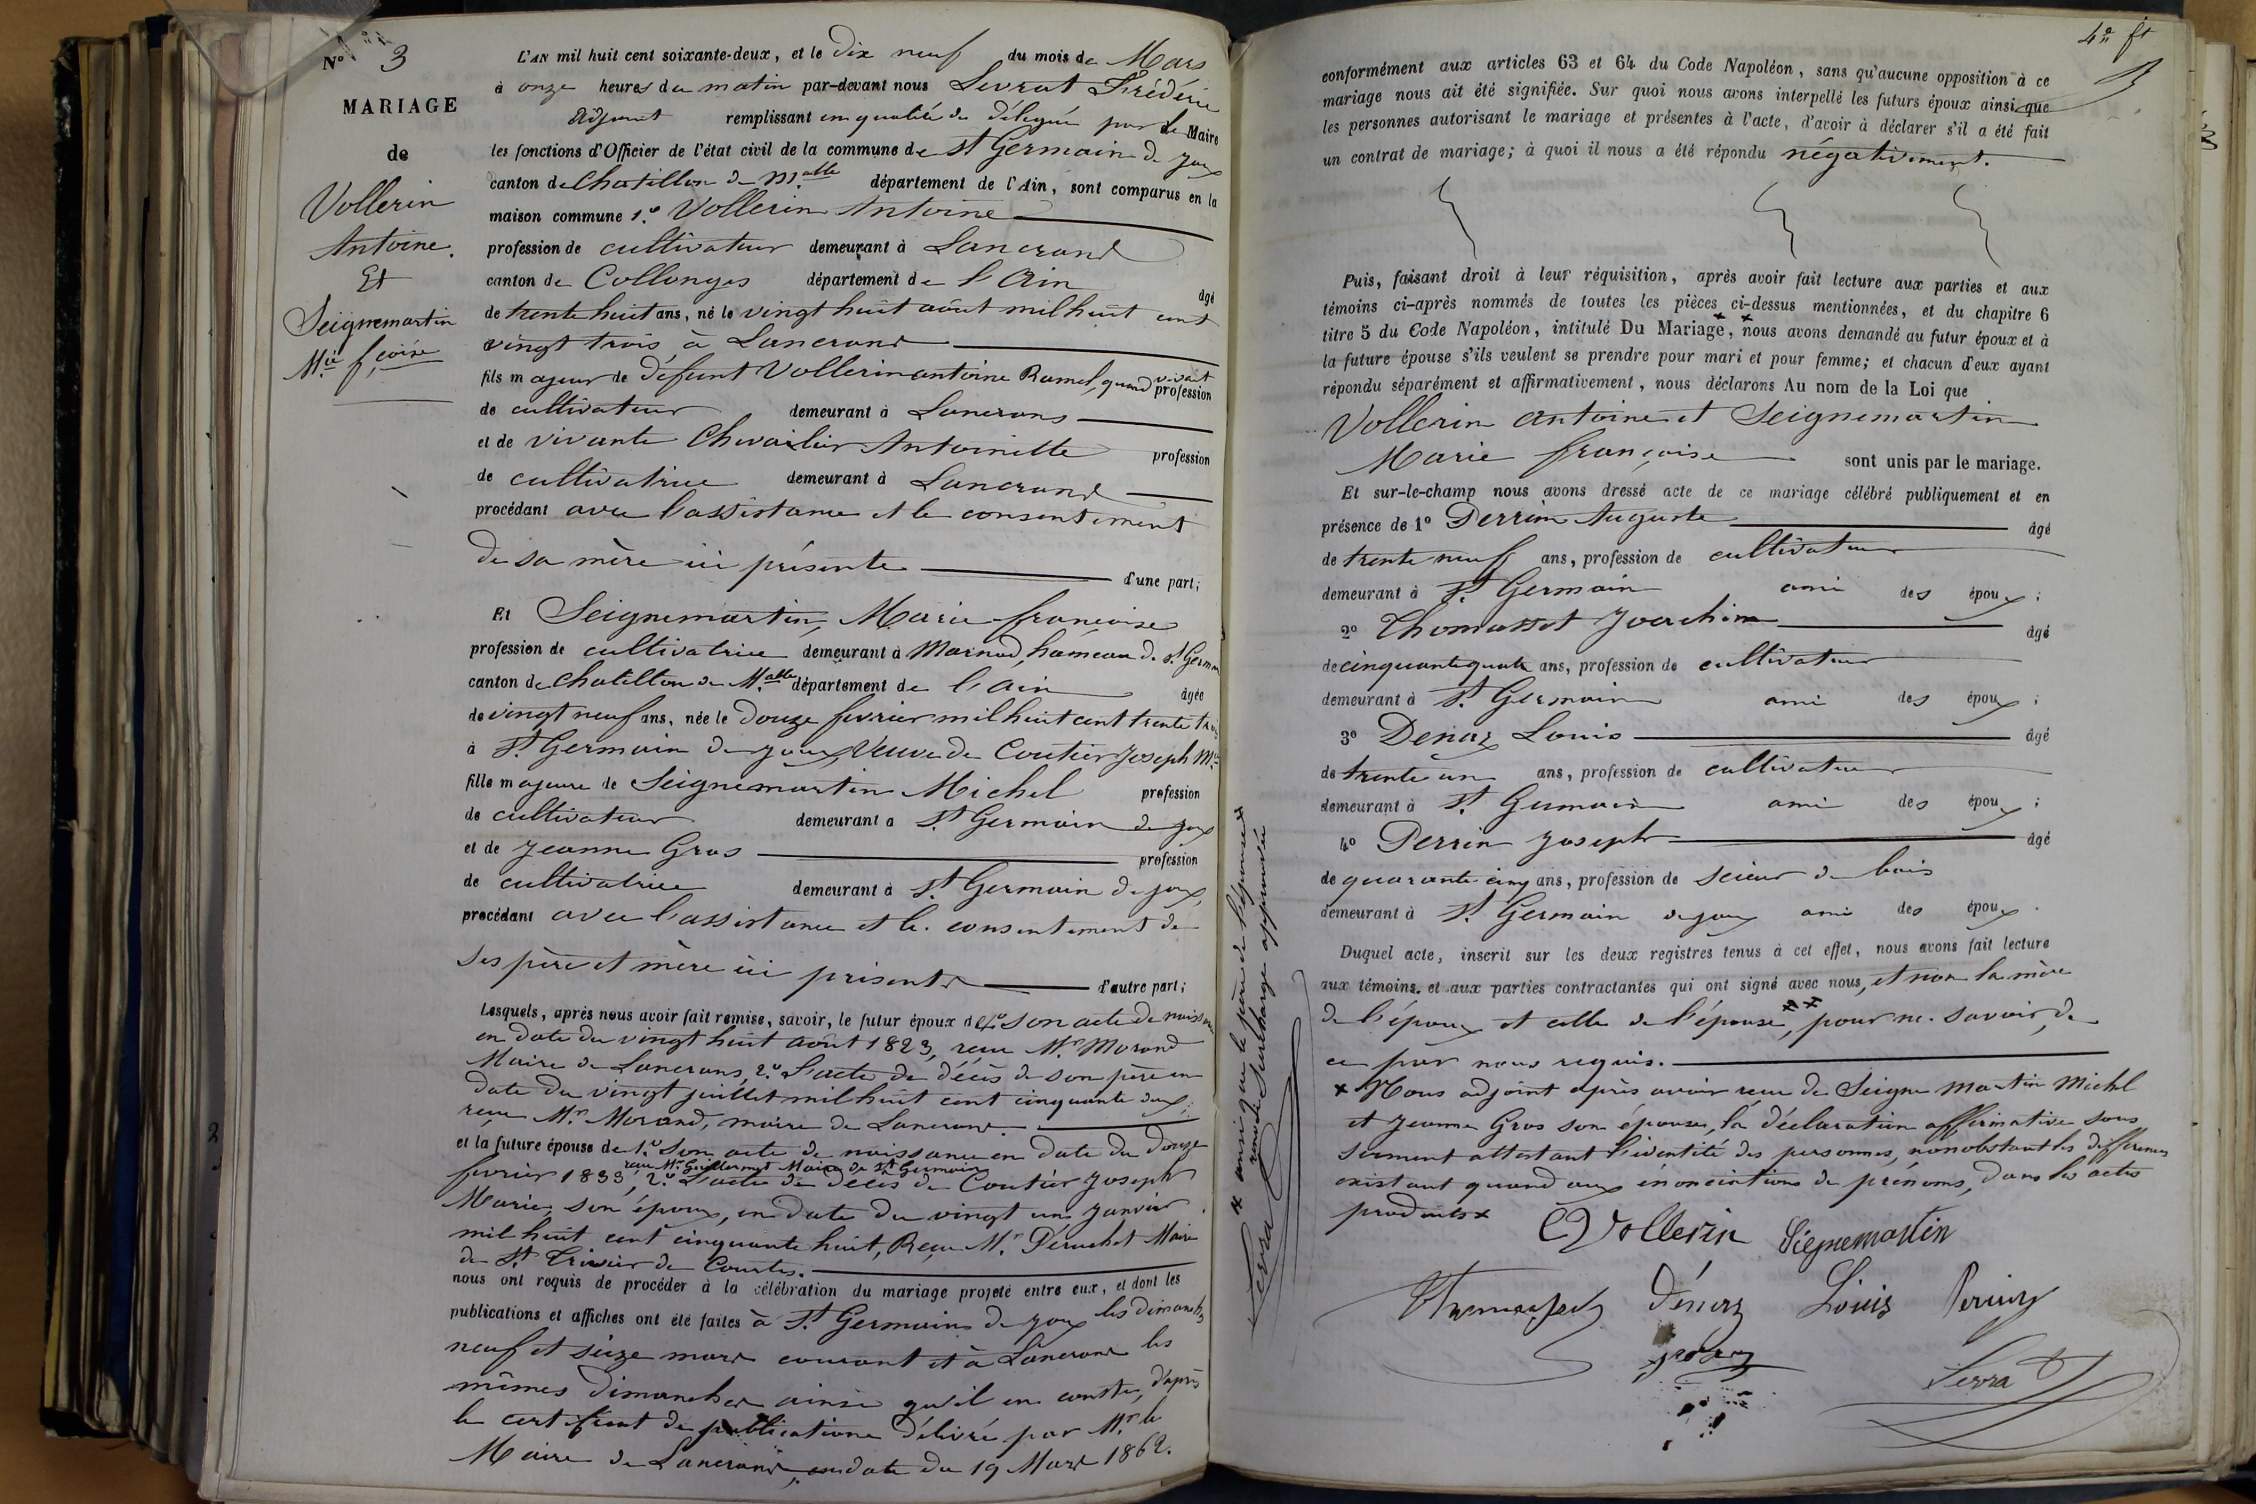 N° 3
MARIAGE
de
Vollerin
Antoine.
Et
Seignemartin
M.ie f.çoise
L'AN mil huit cent soixante-deux, et le dix neuf du mois de Mars
à onze heures du matin par-devant nous Levrat Frédéric
Adjoint remplissant en qualité de délégué par le Maire
les fonctions d'Officier de l'état civil de la commune de St Germain de Joux
canton de Chatillon de M.alle département de l'Ain, sont comparus en la
maison commune 1.° Vollerin Antoine
profession de cultivateur demeurant à Lancrand
canton de Collonges département de l'Ain âgé
de trente huit ans, né le vingt huit août mil huit cent
vingt trois, à Lancrans
fils majeur de défunt Vollerin antoine Ramel, quand vivait profession
de cultivateur demeurant à Lancrans
et de vivante Chevalier Antoinette profession
de cultivatrice demeurant à Lancrand
procédant avec l'assistance et le consentement
de sa mère ici présente d'une part;
Et Seignemartin, Marie françoise
profession de cultivatrice demeurant à Marnod, hameau de St Germain
canton de Chatillon de M.alle département de l'ain âgée
de vingt neuf ans, née le Douze fevrier mil huit cent trente trois
à St Germain de joux, Veuve de Coutier Joseph M.ie
fille majeure de Seignemartin Michel profession
de cultivateur demeurant à St Germain de joux
et de Jeanne Gros profession
de cultivatrice demeurant à St Germain de joux,
procédant avec l'assistance et le consentement de
ses père et mère ici présents d'autre part;
Lesquels, après nous avoir fait remise, savoir, le futur époux de 1.° son acte de naissance
en date du vingt huit août 1823, reçu Mr Morand
Maire de Lancrans, 2.° L'acte de décès de son père en
date du vingt juillet mil huit cent cinquante deux;
reçu Mr. Morand, maire de Lancrans.
et la future épouse de 1.° Son acte de naissance en date du douze
reçu Mr Guillermet Maire de St Germain
fevrier 1833, 2.° L'acte de décès de Coutier Joseph
Marie, son époux, en date du vingt un janvier
mil huit cent cinquante huit, Reçu Mr. Péruchet Maire
de St Trivier de Courtes.
nous ont requis de procéder à la célébration du mariage projeté entre eux, et dont les
publications et affiches ont été faites à St Germain de joux les dimanches
neuf et seize mars courant et à Lancrans les
mêmes dimanches ainsi qu'il en conste, d'après
le certificat de publications délivré par Mr le
Maire de Lancrans, en date du 19 Mars 1862.
conformément aux articles 63 et 64 du Code Napoléon, sans qu'aucune opposition à ce
mariage nous ait été signifiée. Sur quoi nous avons interpellé les futurs époux ainsi que
les personnes autorisant le mariage et présentes à l'acte, d'avoir à déclarer s'il a été fait
un contrat de mariage; à quoi il nous a été répondu négativement.
Puis, faisant droit à leur réquisition, après avoir fait lecture aux parties et aux
témoins ci-après nommés de toutes les pièces ci-dessus mentionnées, et du chapitre 6
titre 5 du Code Napoléon, intitulé Du Mariage, x x nous avons demandé au futur époux et à
la future épouse s'ils veulent se prendre pour mari et pour femme; et chacun d'eux ayant
répondu séparément et affirmativement, nous déclarons Au nom de la Loi que
Vollerin antoine et Seignemartin
Marie françoise sont unis par le mariage.
Et sur-le-champ nous avons dressé acte de ce mariage célébré publiquement et en
présence de 1° Perrin Auguste âgé
de trente neuf ans, profession de cultivateur
demeurant à St Germain ami des époux;
2° Thomasset Joachim âgé
de cinquante quatre ans, profession de cultivateur
demeurant à St Germain ami des époux;
3° Denaz Louis âgé
de trente un ans, profession de cultivateur
demeurant à St Germain ami des époux;
4° Perrin Joseph âgé
de quarante cinq ans, profession de scieur de bois
demeurant à St Germain de joux ami des époux.
Duquel acte, inscrit sur les deux registres tenus à cet effet, nous avons fait lecture
aux témoins et aux parties contractantes qui ont signé avec nous, et non la mère
de l'époux et celle de l'épouse, xx pour ne savoir, de
ce par nous requis.
x Nous adjoint après avoir reçu de Seigne martin Michel
et Jeanne Gros son épouse, la déclaration affirmative sous
serment attestant l'identité des personnes, nonobstant les differences
existant quand aux énonciations de prénoms, dans les actes
produits x
xx ainsi que le père de l'épouse xx
surcharge approuvée
Levrat
Vollerin Siegnemartin
Dénarz Louis
Levrat